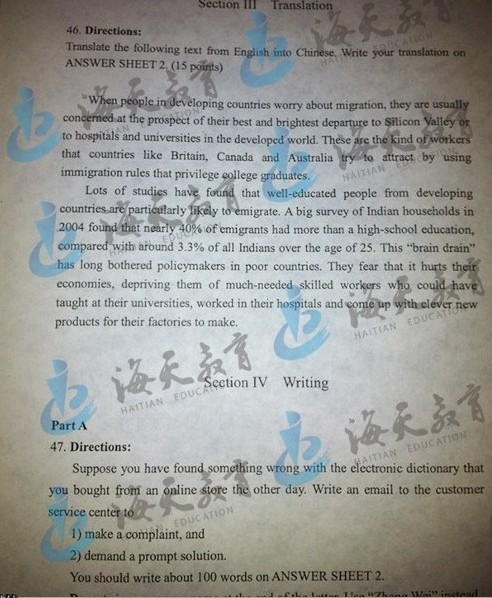 Section III Translation
46. Directions:
Translate the following text from English into Chinese. Write your translation on
ANSWER SHEET 2. (15 points)
"When people in developing countries worry about migration, they are usually
concerned at the prospect of their best and brightest departure to Silicon Valley or
to hospitals and universities in the developed world. These are the kind of workers
that countries like Britain, Canada and Australia try to attract by using
immigration rules that privilege college graduates.
Lots of studies have found that well-educated people from developing
countries are particularly likely to emigrate. A big survey of Indian households in
2004 found that nearly 40% of emigrants had more than a high-school education,
compared with around 3.3% of all Indians over the age of 25. This "brain drain"
has long bothered policymakers in poor countries. They fear that it hurts their
economies, depriving them of much-needed skilled workers who could have
taught at their universities, worked in their hospitals and come up with clever new
products for their factories to make.
Section IV Writing
Part A
47. Directions:
Suppose you have found something wrong with the electronic dictionary that
you bought from an online store the other day. Write an email to the customer
service center to
1) make a complaint, and
2) demand a prompt solution.
You should write about 100 words on ANSWER SHEET 2.
end of the letter. Use "Zhang Wei" instead
海天教育
HAITIAN EDUCATION
海天教育
HAITIAN EDUCATION
海天教育
HAITIAN EDUCATION
海天教育
HAITIAN EDUCATION
海天教育
HAITIAN EDUCATION
海天教育
HAITIAN EDUCATION
海天教育
HAITIAN EDUCATION
海天教育
HAITIAN EDUCATION